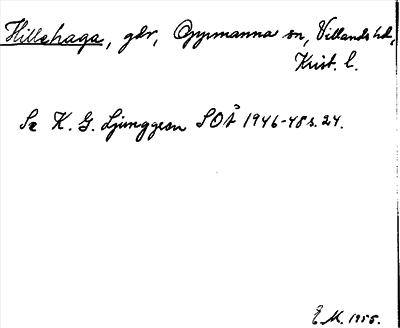 Hillehaga, gdr, Oppmanna sn, Villands hd,
Krist. l.
Se K. G. Ljunggren SOÅ 1946-48 s. 24.
E. M. 1955.